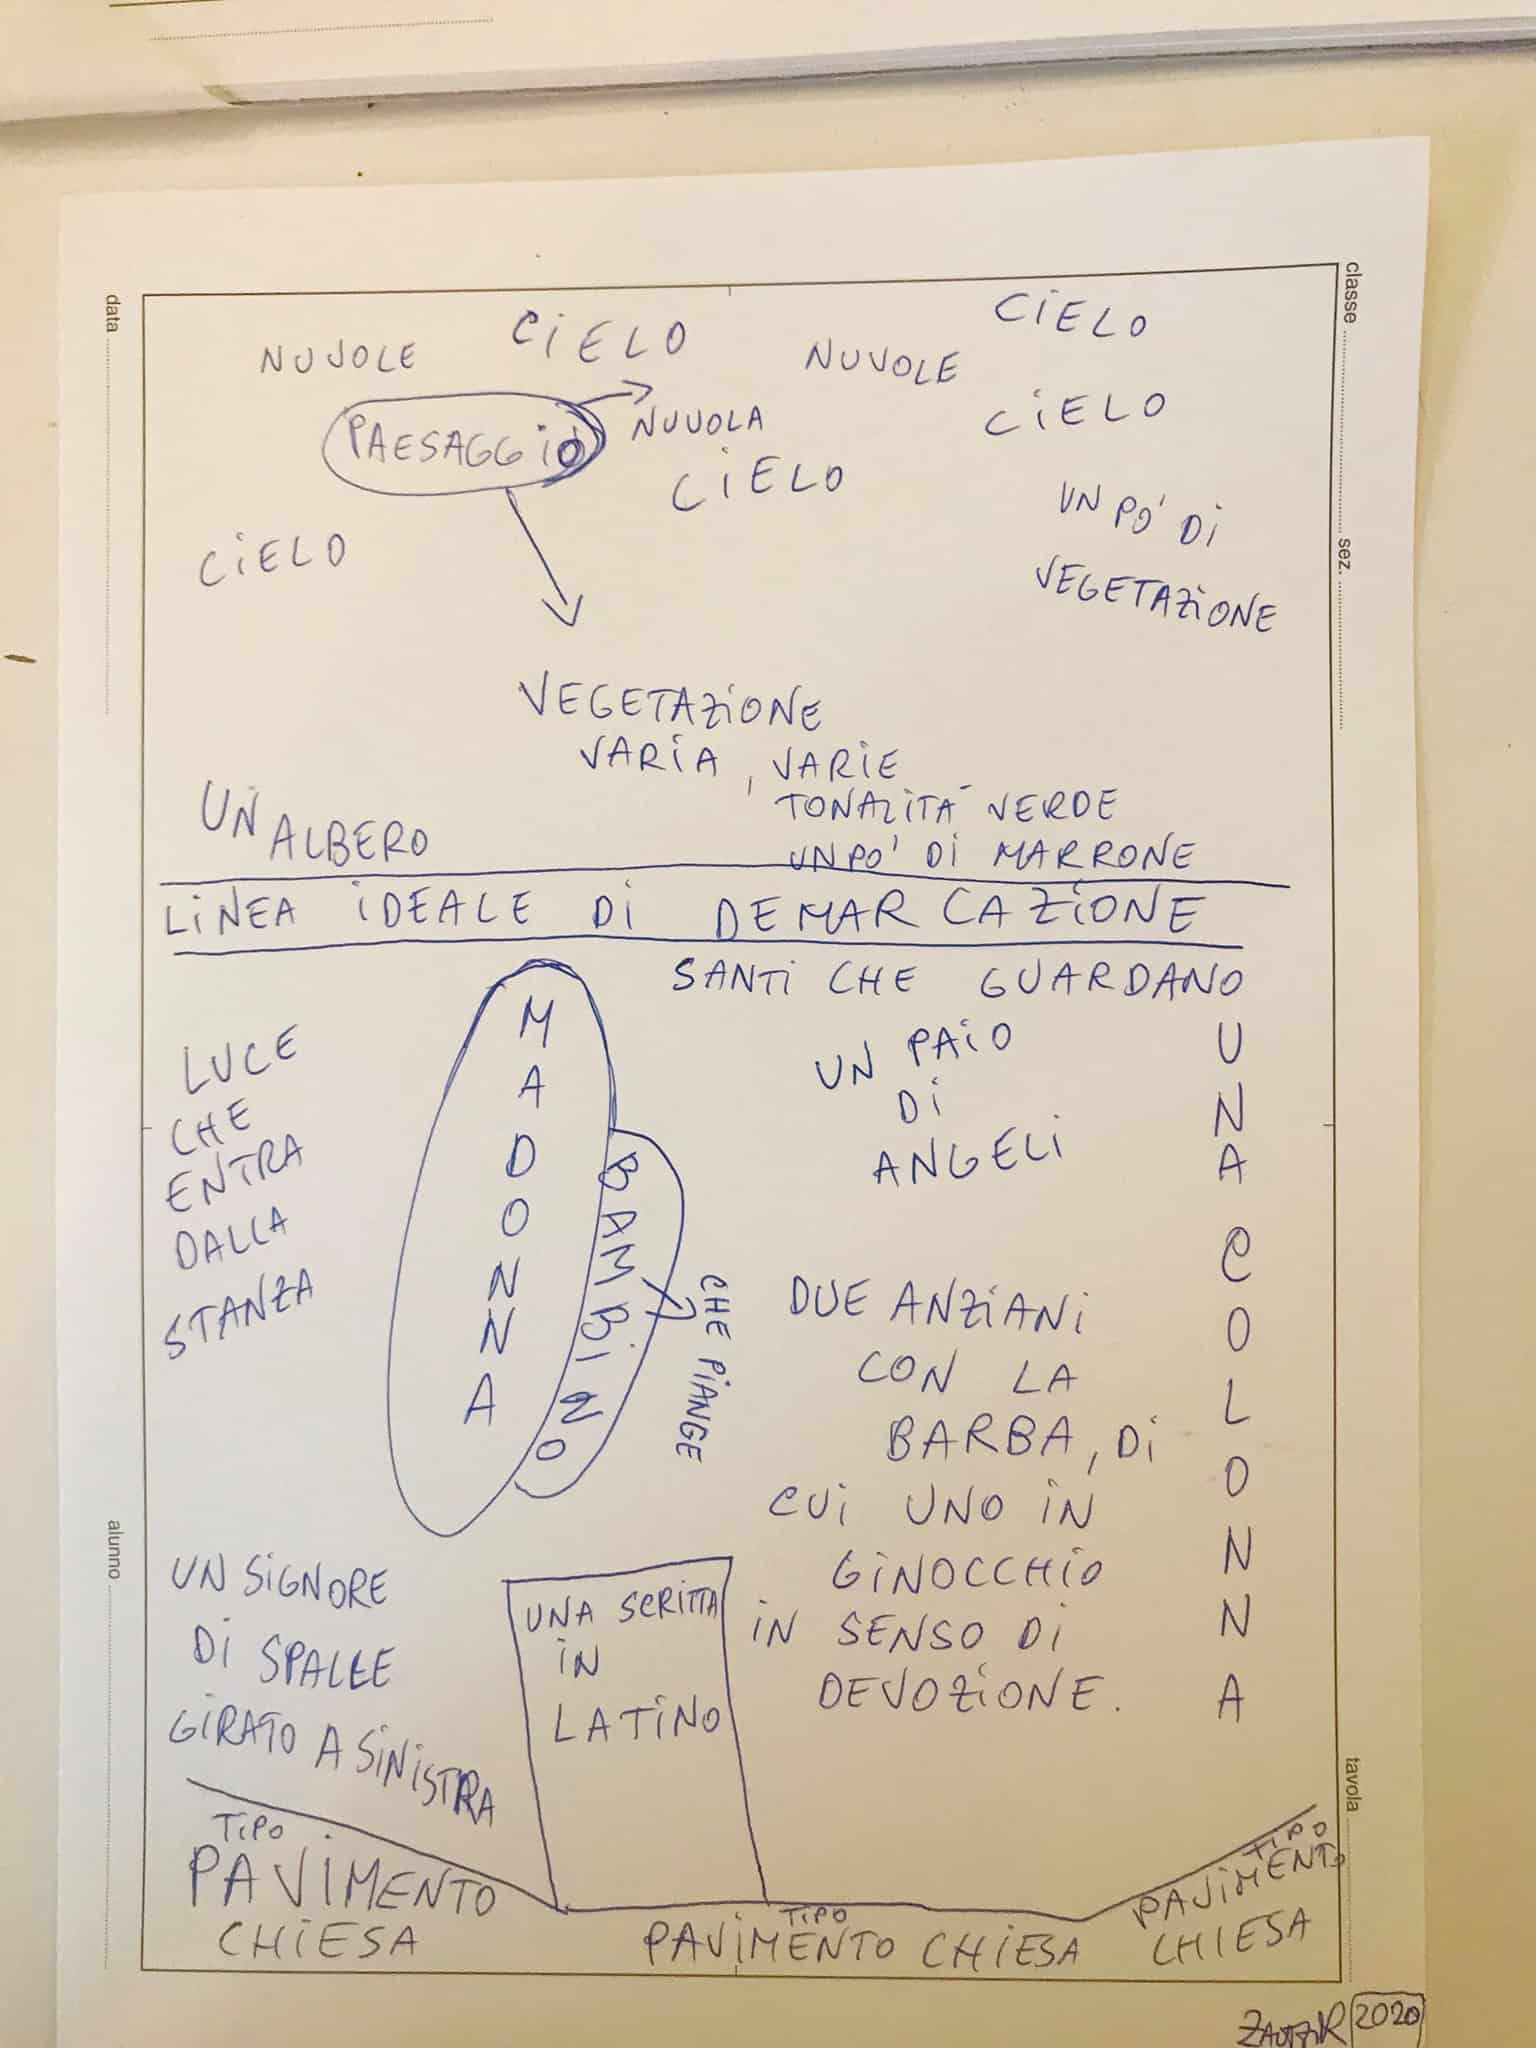 data
classe
sez.
NUVOLE
CiELO
NUVOLE
CiELO
PAESAGGiO
NUVOLA
CiELO
CiELO
CiELO
UN PO' Di
VEGETAZiONE
VEGETAZiONE
VARiA, VARiE
TONALiTA' VERDE
UN PO' Di MARRONE
UN ALBERO
LiNEA iDEALE Di DEMARCAZiONE
SANTi CHE GUARDANO
LUCE
CHE
ENTRA
DALLA
STANZA
MADONNA
BAMBiNO
CHE PiANGE
UN PAiO
Di
ANGELi
UNA COLONNA
DUE ANZiANi
CON LA
BARBA, Di
CUi UNO iN
GiNOCCHiO
iN SENSO Di
DEVOZiONE.
alunno
UN SiGNORE
Di SPALLE
GiRATO A SiNiSTRA
UNA SCRiTTA
iN
LATiNO
tavola
TiPO
PAViMENTO
CHiESA
TiPO
PAViMENTO CHiESA
TiPO
PAViMENTO
CHiESA
2020